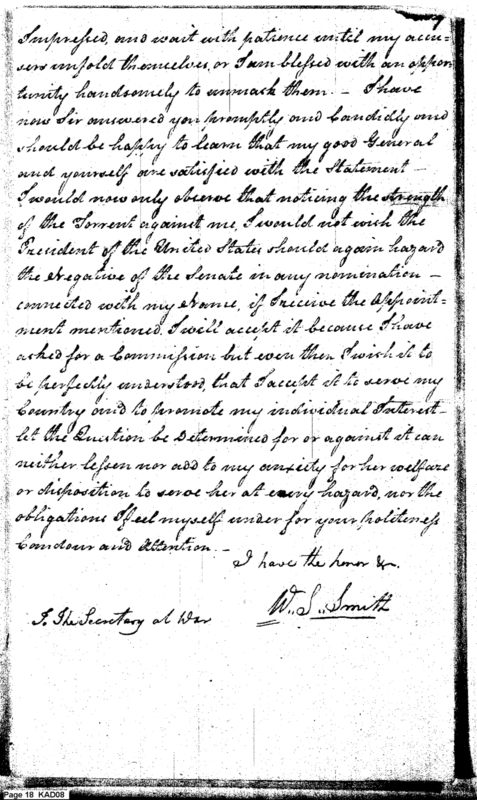 Impressed, and wait with patience until my accu-
sers unfold themselves, or I am blessed with an oppor
tunity handsomely to unmask them. — I have
now Sir answered you promptly and Candidly and
should be happy to learn that my good General
and yourself are satisfied with the Statement —
I would now only observe that noticing the strength
of the Torrent against me, I would not wish the
President of the United States should again hazard
the Negative of the Senate in any nomination —
connected with my Name, if I receive the Appoint-
ment mentioned. I will accept it because I have
asked for a Commission but even then I wish it to
be perfectly understood, that I accept it to serve my
Country and to promote my individual Interest —
let the Question be Determined for or against it can
neither lessen nor add to my anxiety for her welfare
or disposition to serve her at every hazard, nor the
obligations I feel myself under for your politeness
Candour and Attention. —
I have the honor &c.
W. S. Smith
To The Secretary at War
Page 18 KAD08